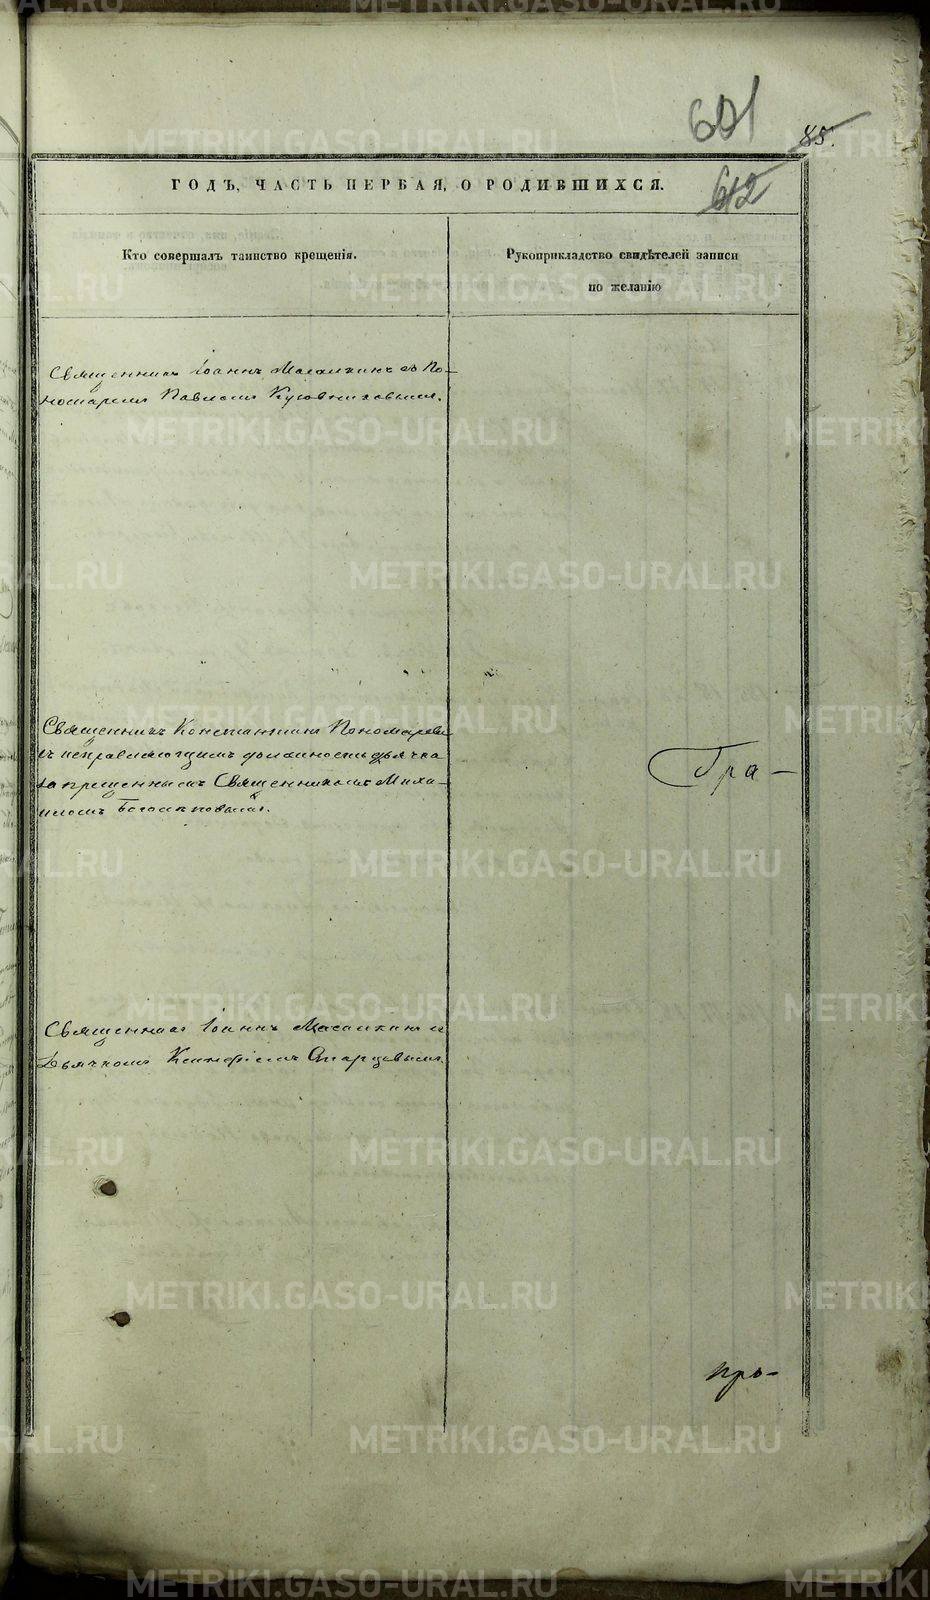 601
85.
612
ГОДЪ, ЧАСТЬ ПЕРВАЯ, О РОДИВШИХСЯ.
Кто совершалъ таинство крещенія.
Рукоприкладство свидѣтелей записи
по желанію
Священникъ Іоаннъ съ По-
номаремъ Павломъ
Священникъ Константинъ Пономаревъ
съ исправляющимъ должность дьячка
запрещеннымъ Священникомъ Миха-
иломъ
Гра-
Священникъ Іоаннъ
Дьячкомъ
про-
METRIKI.GASO-URAL.RU